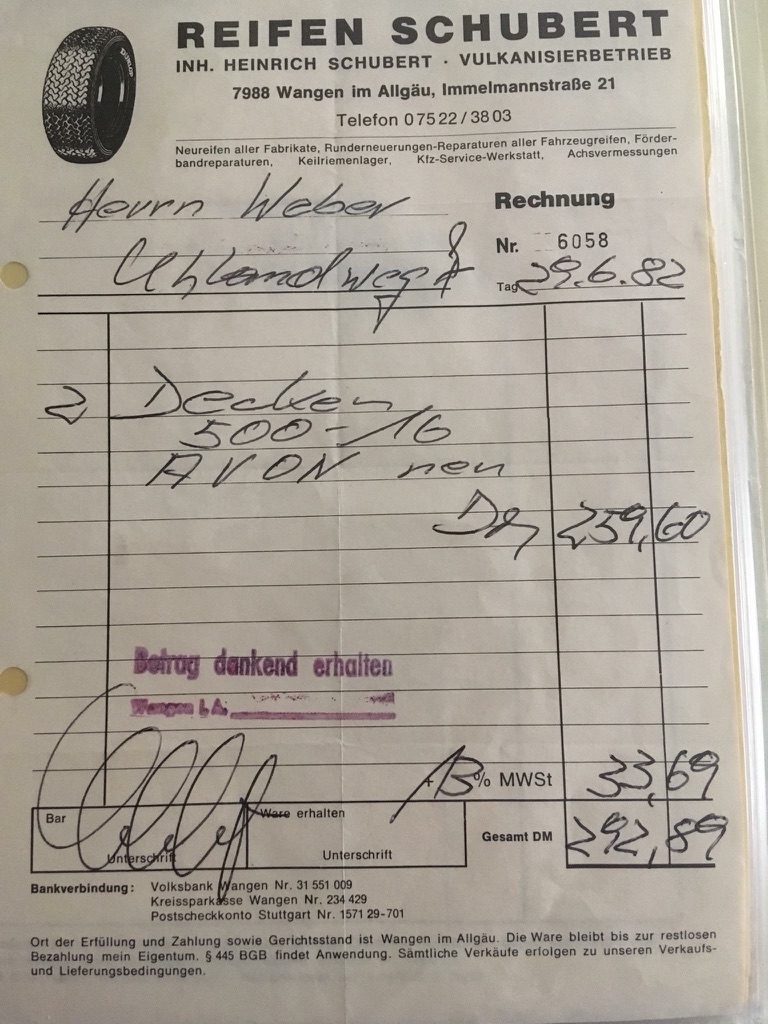 DUNLOP
REIFEN SCHUBERT
INH. HEINRICH SCHUBERT · VULKANISIERBETRIEB
7988 Wangen im Allgäu, Immelmannstraße 21
Telefon 07522/3803
Neureifen aller Fabrikate, Runderneuerungen-Reparaturen aller Fahrzeugreifen, Förder-
bandreparaturen, Keilriemenlager, Kfz-Service-Werkstatt, Achsvermessungen
Herrn Weber
Rechnung
Nr. 6058
Uhlandweg
Tag 29.6.82
2 Decken
500-16
AVON neu
259,60
Betrag dankend erhalten
Wangen i. A.
+ 13% MWSt 33,69
Bar
Unterschrift
Ware erhalten
Unterschrift
Gesamt DM 292,89
Bankverbindung: Volksbank Wangen Nr. 31 551 009
Kreissparkasse Wangen Nr. 234 429
Postscheckkonto Stuttgart Nr. 1571 29-701
Ort der Erfüllung und Zahlung sowie Gerichtsstand ist Wangen im Allgäu. Die Ware bleibt bis zur restlosen
Bezahlung mein Eigentum. § 445 BGB findet Anwendung. Sämtliche Verkäufe erfolgen zu unseren Verkaufs-
und Lieferungsbedingungen.